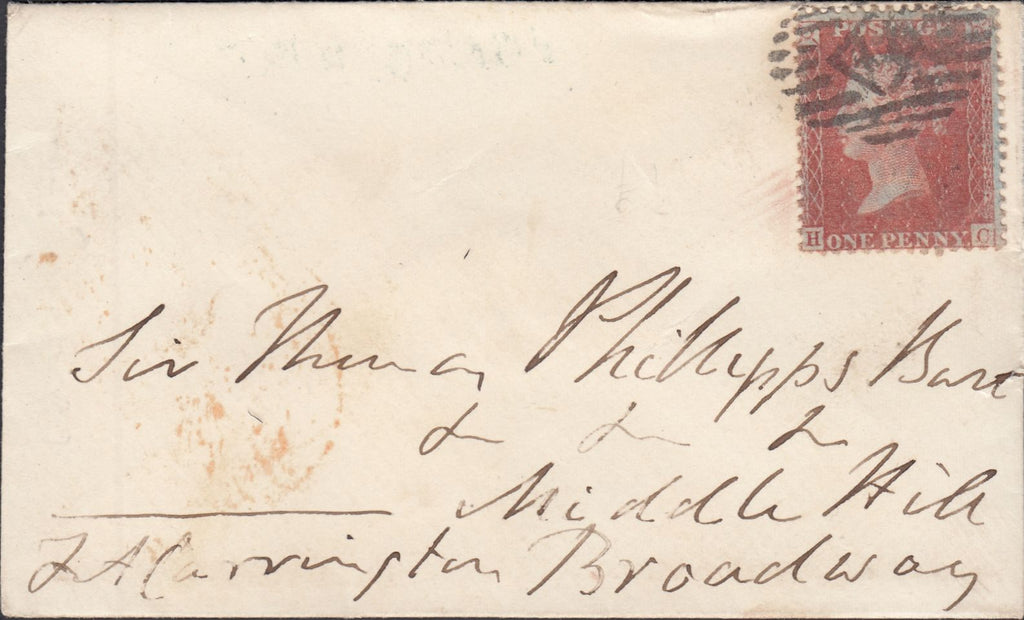 POSTAGE
H ONE PENNY. C
Sir Thomas Phillipps Bart
& & &
Middle Hill
F A Carrington Broadway